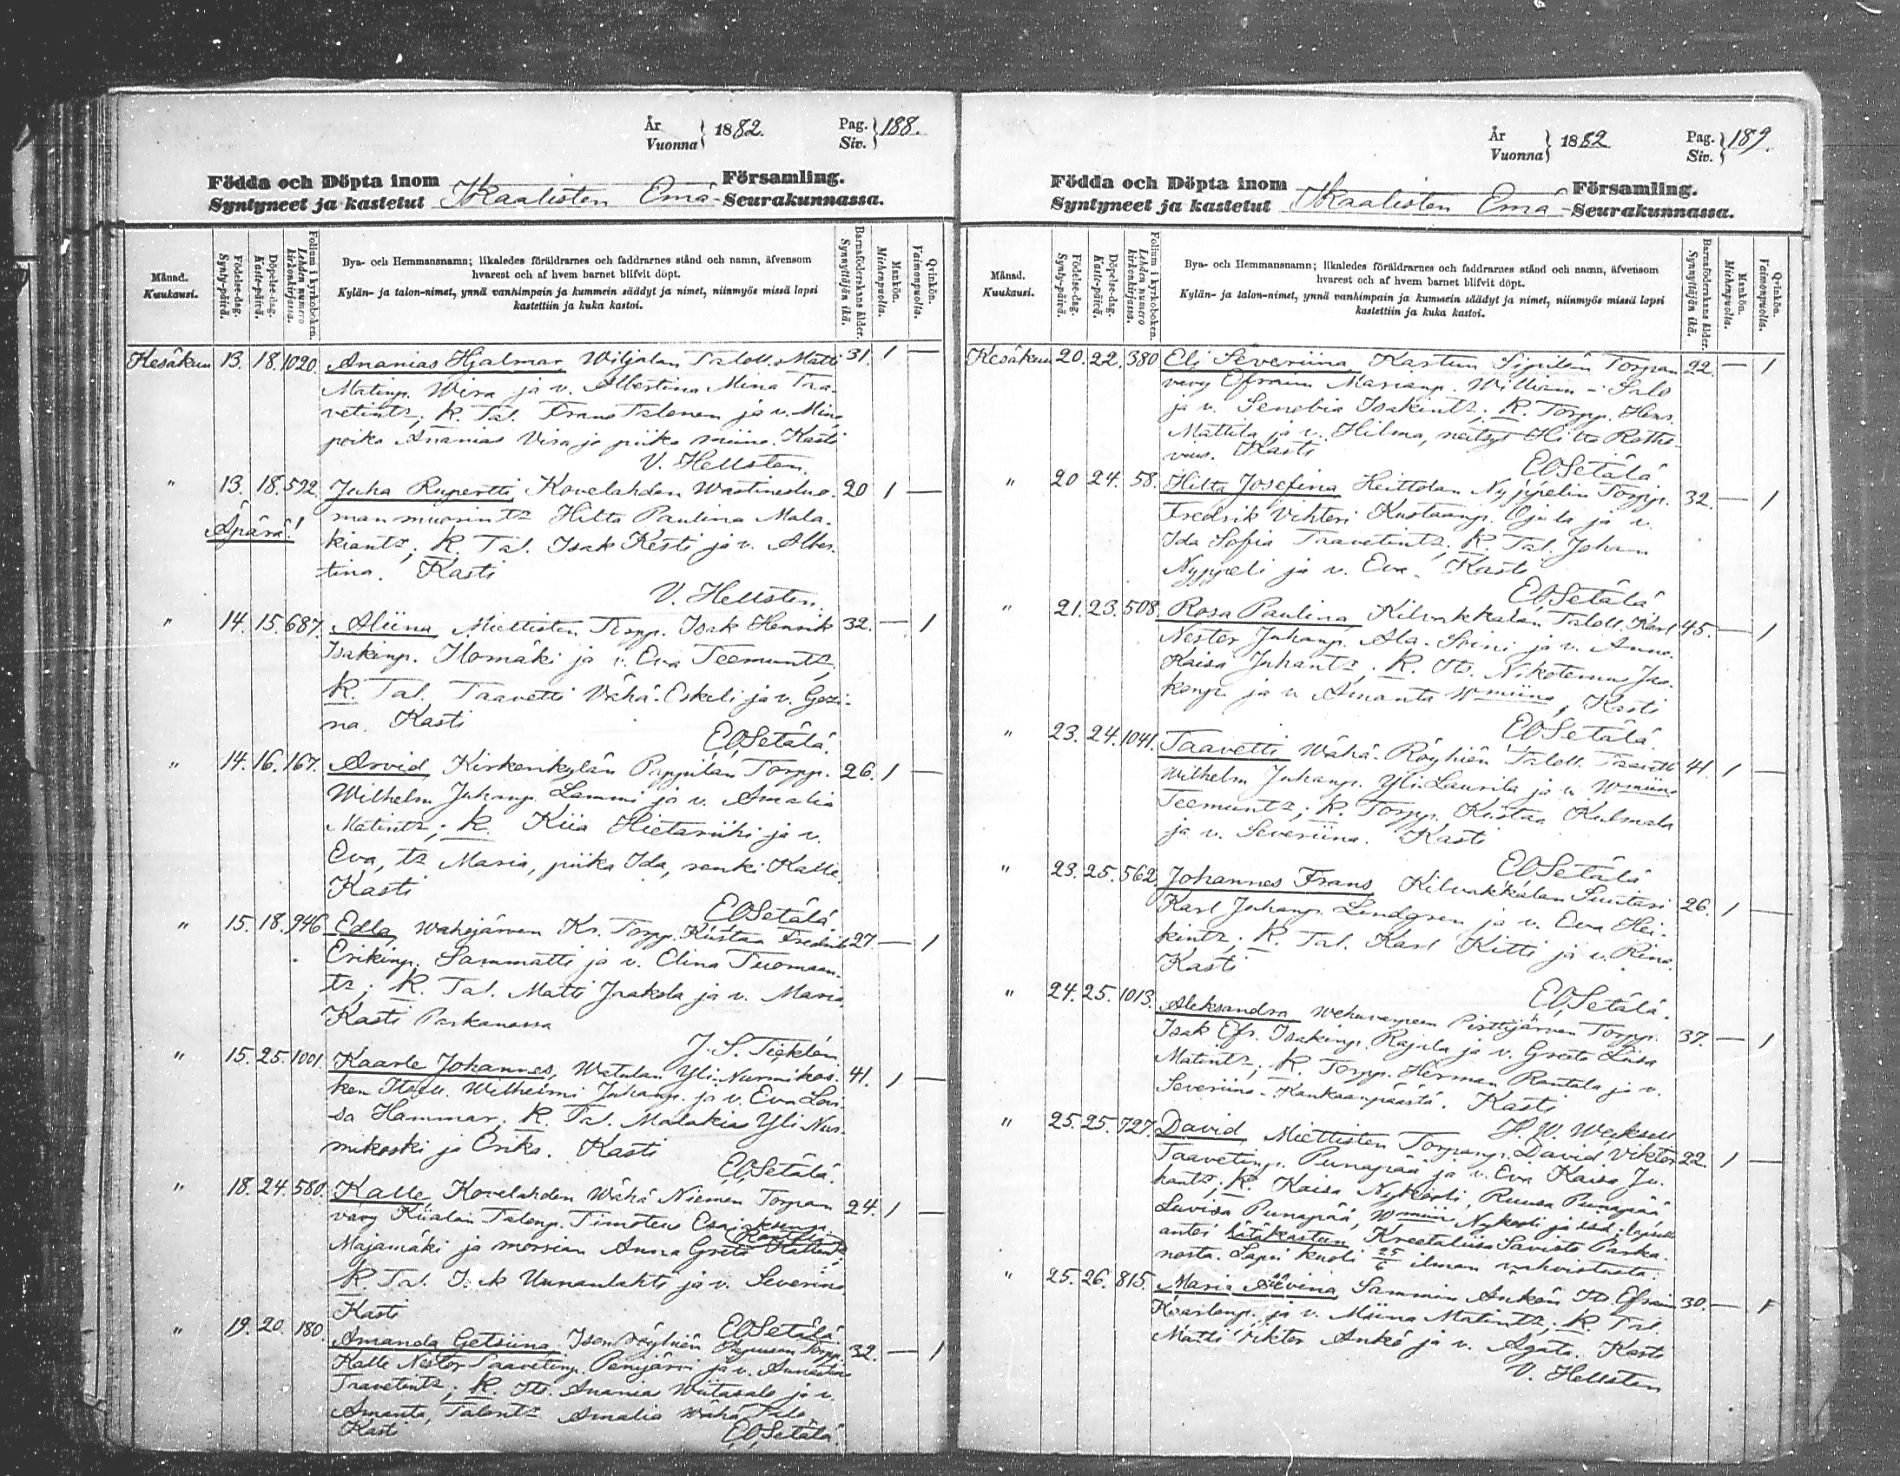 År
Vuonna
1882.
Pag.
Siv.
188.
Födda och Döpta inom
Syntyneet ja kastetut
Ikaalisten Emä-
Församling.
Seurakunnassa.
Månad.
Kuukausi.
Födelse-dag.
Synty-päivä.
Döpelse-dag.
Kaste-päivä.
Folium i kyrkoboken.
Lehden numero kirkonkirjassa.
Bya- och Hemmansnamn; likaledes föräldrarnes och faddrarnes stånd och namn, äfvensom
hvarest och af hvem barnet blifvit döpt.
Kylän- ja talon-nimet, ynnä vanhimpain ja kummein säädyt ja nimet, niinmyös missä lapsi
kastettiin ja kuka kastoi.
Barnaföderskans ålder.
Synnyttäjän ikä.
Mankön.
Miehenpuolia.
Qvinkön.
Vaimonpuolia.
Kesäkuu 13. 18. 1020. Ananias Hjalmar, Wiljalan Taloll. Matti 31. 1 —
Matinp. Wira ja v. Albertina Mina Taa-
vetintr; K. Tal. Frans Talonen ja v. Mina
poika Ananias Vira ja piika Miina. Kasti
V. Hellsten.
" 13. 18. 592. Juha Rupertti Kovelahden 20 1 —
Äpärä! Hilta Paulina Mala-
kiantr; K. Tal. Isak Kesti ja v. Alber-
tina. Kasti
V. Hellsten.
" 14. 15. 687. Aliina Miettisten Torpp. Isak Henrik 32. — 1
Isakinp. Ilomäki ja v. Eva Teemuntr,
K. Tal. Taavetti Vähä-Eskeli ja v. Gesi-
na. Kasti
E O Setälä.
" 14. 16. 167. Arvid Kirkonkylän Pappilan Torpp. 26. 1 —
Wilhelm Juhanp. Lammi ja v. Amalia
Matintr; K. Kiia Hietariihi ja v.
Eva, tr Maria, piika Ida, renki Kalle.
Kasti
E O Setälä.
" 15. 18. 946. Edla Wahojärven Kr. Torpp. Kustaa Fredrik 27 — 1
Erikinp. Sammatti ja v. Elina Tuomaan-
tr; K. Tal. Matti Jaakola ja v. Maria
Kasti Parkanossa
J. S. Ticklén
" 15. 25. 1001. Kaarle Johannes, Watulan Yli-Nurmikos- 41. 1 —
ken Itsell. Wilhelmi Juhanp. ja v. Eva Lovi-
sa Hammar; K. Tal. Malakias Yli Nur-
mikoski ja Erika. Kasti
E O Setälä.
" 18. 24. 580. Kalle Kovelahden Wähä Niemen Torpan 24. 1 —
vävy Kiialan Talonp. Timoteus Esaiaksenp.
Majamäki ja morsian Anna Greta
K. Tal. Isak Uunanlahti ja v. Severiina
Kasti
E O Setälä.
" 19. 20. 180. Amanda Getsiina Ison Röyhiön Torpp. 32. — 1
Kalle Nestor Taavetinp. Penijärvi ja v.
Taavetintr; K. Itr. Anania Wiitasalo ja v.
Amanta, Talontr Amalia Wähä
Kasti
E O Setälä.
År
Vuonna
1882
Pag.
Siv.
189.
Födda och Döpta inom
Syntyneet ja kastetut
Ikaalisten Emä-
Församling.
Seurakunnassa.
Månad.
Kuukausi.
Födelse-dag.
Synty-päivä.
Döpelse-dag.
Kaste-päivä.
Folium i kyrkoboken.
Lehden numero kirkonkirjassa.
Bya- och Hemmansnamn; likaledes föräldrarnes och faddrarnes stånd och namn, äfvensom
hvarest och af hvem barnet blifvit döpt.
Kylän- ja talon-nimet, ynnä vanhimpain ja kummein säädyt ja nimet, niinmyös missä lapsi
kastettiin ja kuka kastoi.
Barnaföderskans ålder.
Synnyttäjän ikä.
Mankön.
Miehenpuolia.
Qvinkön.
Vaimonpuolia.
Kesäkuu 20. 22. 380 Eli Severiina Kartun Sipilän Torpan 22. — 1
vävy Efraim Marianp. William-Salo
ja v. Senebia Isakintr; K. Torpp. Henr.
Mattila ja v. Hilma, neitsyt Hilta
Kasti
E O Setälä
" 20 24. 58. Hilta Josefina Heittolan Nyppelin Torpp. 32. — 1
Fredrik Vihtori Kustaanp. Ojala ja v.
Ida Sofia Taavetintr. K. Tal. Johan
Nyppeli ja v. Eva. Kasti
E O Setälä
" 21. 23. 508. Rosa Paulina Kilvakkalan Taloll. Karl 45. — 1
Nestor Juhanp. Ala-Soini ja v. Anna
Kaisa Juhantr; K. Itr. Nikotemus Jaa-
konp. ja v. Amanta Wmiina, Kasti
E O Setälä.
" 23. 24. 1041. Taavetti Wähä-Röyhiön Taloll. Taavetti 41. 1 —
Wilhelm Juhanp. Yli-Laurila ja v. Wmiina
Teemuntr; K. Torpp. Kustaa Kulmala
ja v. Severiina. Kasti
E O Setälä
" 23. 25. 562. Johannes Frans, Kilvakkalan Suutari 26. 1 —
Karl Juhanp. Lindgren ja v. Eva Hei-
kintr; K. Tal. Karl Kitti ja v. Riina.
Kasti
E O Setälä.
" 24. 25. 1013. Aleksandra Wehuvarpeen Pirttijärven Torpp. 37. — 1
Isak Efr. Isakinp. Rajala ja v. Greta Liisa
Matintr; K. Torpp. Herman Rantala ja v.
Severiina-Kankaanpäästä. Kasti
H. W. Wecksell
" 25. 25. 727. David Miettisten Torpanp. David Viktor 22. 1 —
Taavetinp. Punapää ja v. Eva Kaisa Ju-
hantr; K. Kaisa Nykoski, Ruusa Punapää
Luvisa Punapää, Wmiina Nykoski ja
antoi hätäkasteen Kreetaliisa Savisto Parka-
nosta. Lapsi kuoli 25/6 ilman vahvistusta.
" 25. 26. 815. Maria Alviina Sammin Ankön Itr. Efraim 30. — 1
Kaarlonp. ja v. Miina Matintr; K. Tal.
Matti Viktor Ankö ja v. Agata. Kasti
V. Hellsten